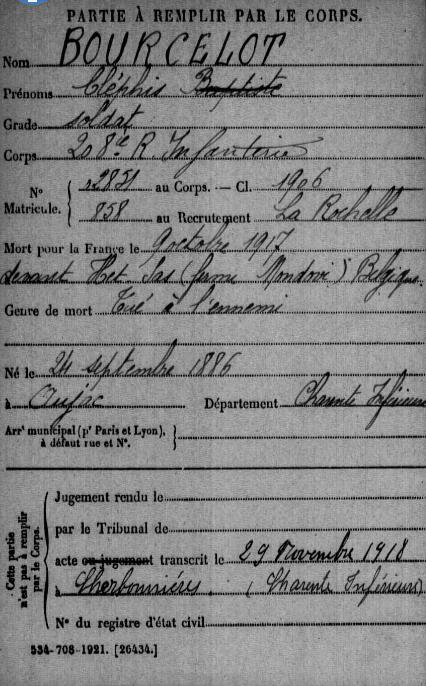 PARTIE À REMPLIR PAR LE CORPS.
Nom BOURCELOT
Prénoms Cléphis Baptiste
Grade soldat
Corps 208e R Infanterie
N° Matricule. { au Corps. — Cl. 1906
858 au Recrutement La Rochelle
Mort pour la France le 9 octobre 1917
devant Het Sas (ferme Mondovi) Belgique
Genre de mort Tué à l'ennemi
Né le 24 septembre 1886
à Aujac Département Charente Inférieure
Arrt municipal (pr Paris et Lyon), à défaut rue et N°. }
Cette partie n'est pas à remplir par le Corps.
Jugement rendu le
par le Tribunal de
acte ou jugement transcrit le 29 Novembre 1918
à Cherbonnières (Charente Inférieure)
N° du registre d'état civil
534-708-1921. [26434.]